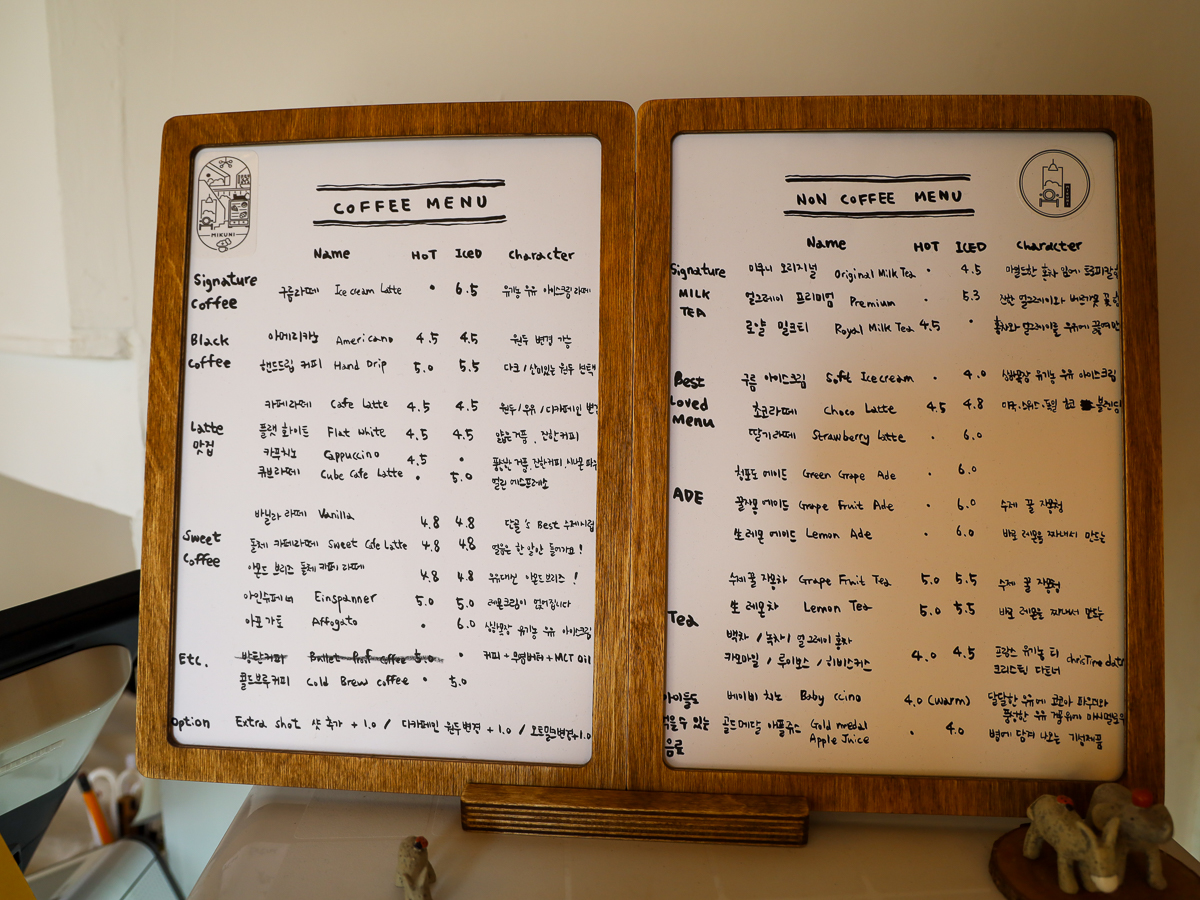 MIKUNI
COFFEE MENU
Name HOT ICED character
Signature Coffee
구름라떼 Ice cream Latte • 6.5 유기농 우유 아이스크림 라떼
Black Coffee
아메리카노 Americano 4.5 4.5 원두 변경 가능
핸드드립 커피 Hand Drip 5.0 5.5 다크 / 산미있는 원두 선택
Latte 맛집
카페라떼 Cafe Latte 4.5 4.5 원두 / 우유 / 디카페인
플랫 화이트 Flat White 4.5 4.5 얇은거품, 진한커피
카푸치노 Cappuccino 4.5 • 풍성한 거품, 진한커피, 시나몬
큐브라떼 Cube Cafe Latte • 5.0 얼린 에스프레소
Sweet Coffee
바닐라 라떼 Vanilla 4.8 4.8 단골's Best 수제시럽
돌체 카페라떼 Sweet Cafe Latte 4.8 4.8 얼음은 한 알만 들어가요!
아몬드 브리즈 돌체 카페 라떼 4.8 4.8 우유대신 아몬드브리즈!
아인슈페너 Einspanner 5.0 5.0 레몬크림이 얹어집니다
아포가토 Affogato • 6.0 상하목장 유기농 우유 아이스크림
Etc.
방탄커피 Bullet Proof coffee 5.0 • 커피 + 우영버터 + MCT Oil
콜드브루커피 Cold Brew coffee • 5.0
option Extra shot 샷 추가 + 1.0 / 디카페인 원두변경 + 1.0 / 오트밀크변경+1.0
NON COFFEE MENU
Name HOT ICED character
Signature MILK TEA
미쿠니 오리지널 Original Milk Tea • 4.5 마일드한 홍차 잎에
얼그레이 프리미엄 Premium • 5.3 진한 얼그레이와
로얄 밀크티 Royal Milk Tea 4.5 • 홍차와 얼그레이를 우유에
Best Loved Menu
구름 아이스크림 Soft Icecream • 4.0 상하목장 유기농 우유 아이스크림
초코라떼 Choco Latte 4.5 4.8 미국, 스위스, 독일 초코 블렌딩
딸기라떼 Strawberry Latte • 6.0
ADE
청포도 에이드 Green Grape Ade • 6.0
꿀자몽 에이드 Grape Fruit Ade • 6.0 수제 꿀 자몽청
쌩레몬 에이드 Lemon Ade • 6.0 바로 레몬을 짜내서 만드는
Tea
수제 꿀 자몽차 Grape Fruit Tea 5.0 5.5 수제 꿀 자몽청
쌩 레몬차 Lemon Tea 5.0 5.5 바로 레몬을 짜내서 만드는
백차 / 녹차 / 얼그레이 홍차
카모마일 / 루이보스 / 히비스커스 4.0 4.5 프랑스 유기농 티 크리스틴 다트너 christine datt
아이들도 먹을 수 있는 음료
베이비 치노 Baby ccino 4.0 (warm) 달달한 우유에 코코아 파우더와 풍성한 우유 거품위에
골드메달 애플쥬스 Gold medal Apple Juice • 4.0 병에 담겨 나오는 기성제품